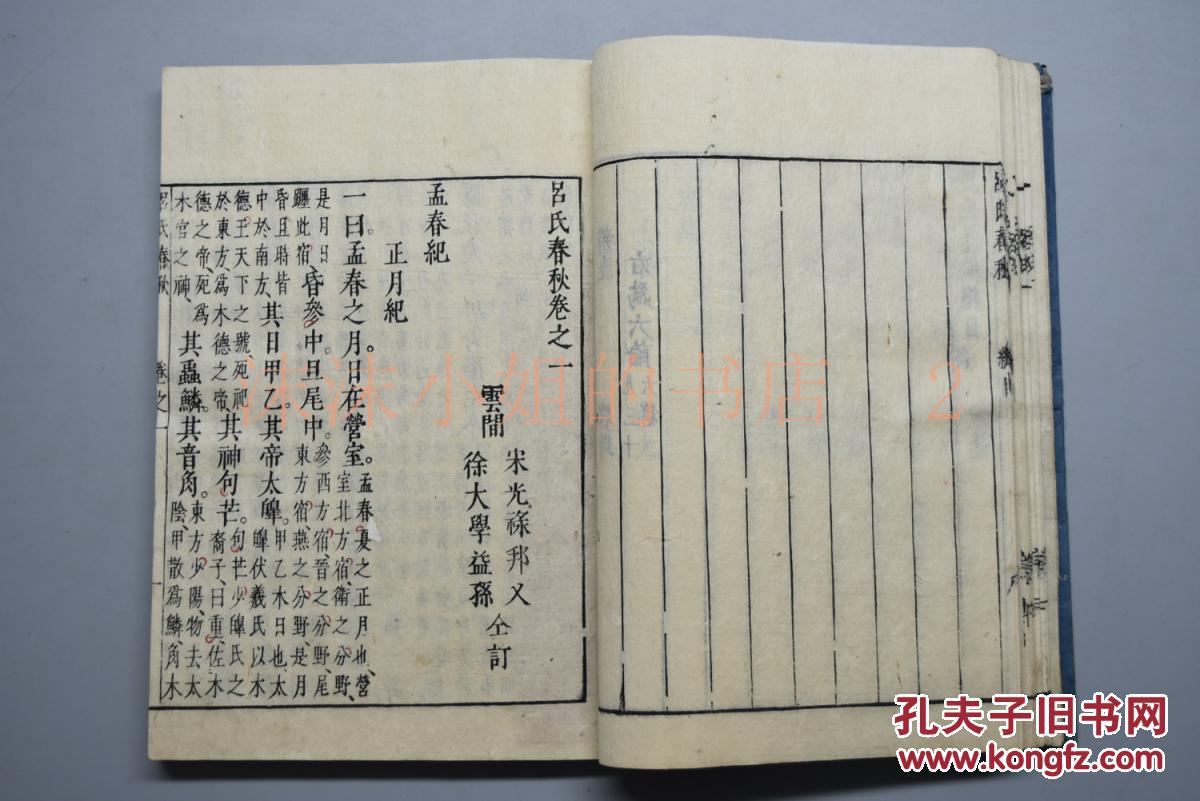 呂氏春秋卷之一
雲間 宋光祿邦乂
徐大學益孫 仝訂
孟春紀
正月紀
一曰。孟春之月。日在營室。孟春、夏之正月也、營
室北方宿、衛之分野、
是月日
躔此宿昏參中。旦尾中。參西方宿、晉之分野、尾
東方宿、燕之分野、是月
昏旦時皆
中於南方、其日甲乙。其帝太皥。甲乙木日也、太
皥伏羲氏以木
德王天下之號、死祀
於東方、爲木德之帝、其神句芒。句芒、少皥氏之
裔子、曰重、佐木
德之帝、死爲
木官之神、其蟲鱗。其音角。東方少陽、物去太
陰、甲散爲鱗、角木
呂氏春秋 卷之一 一
春秋
沫沫小姐的书店 2
孔夫子旧书网
www.kongfz.com